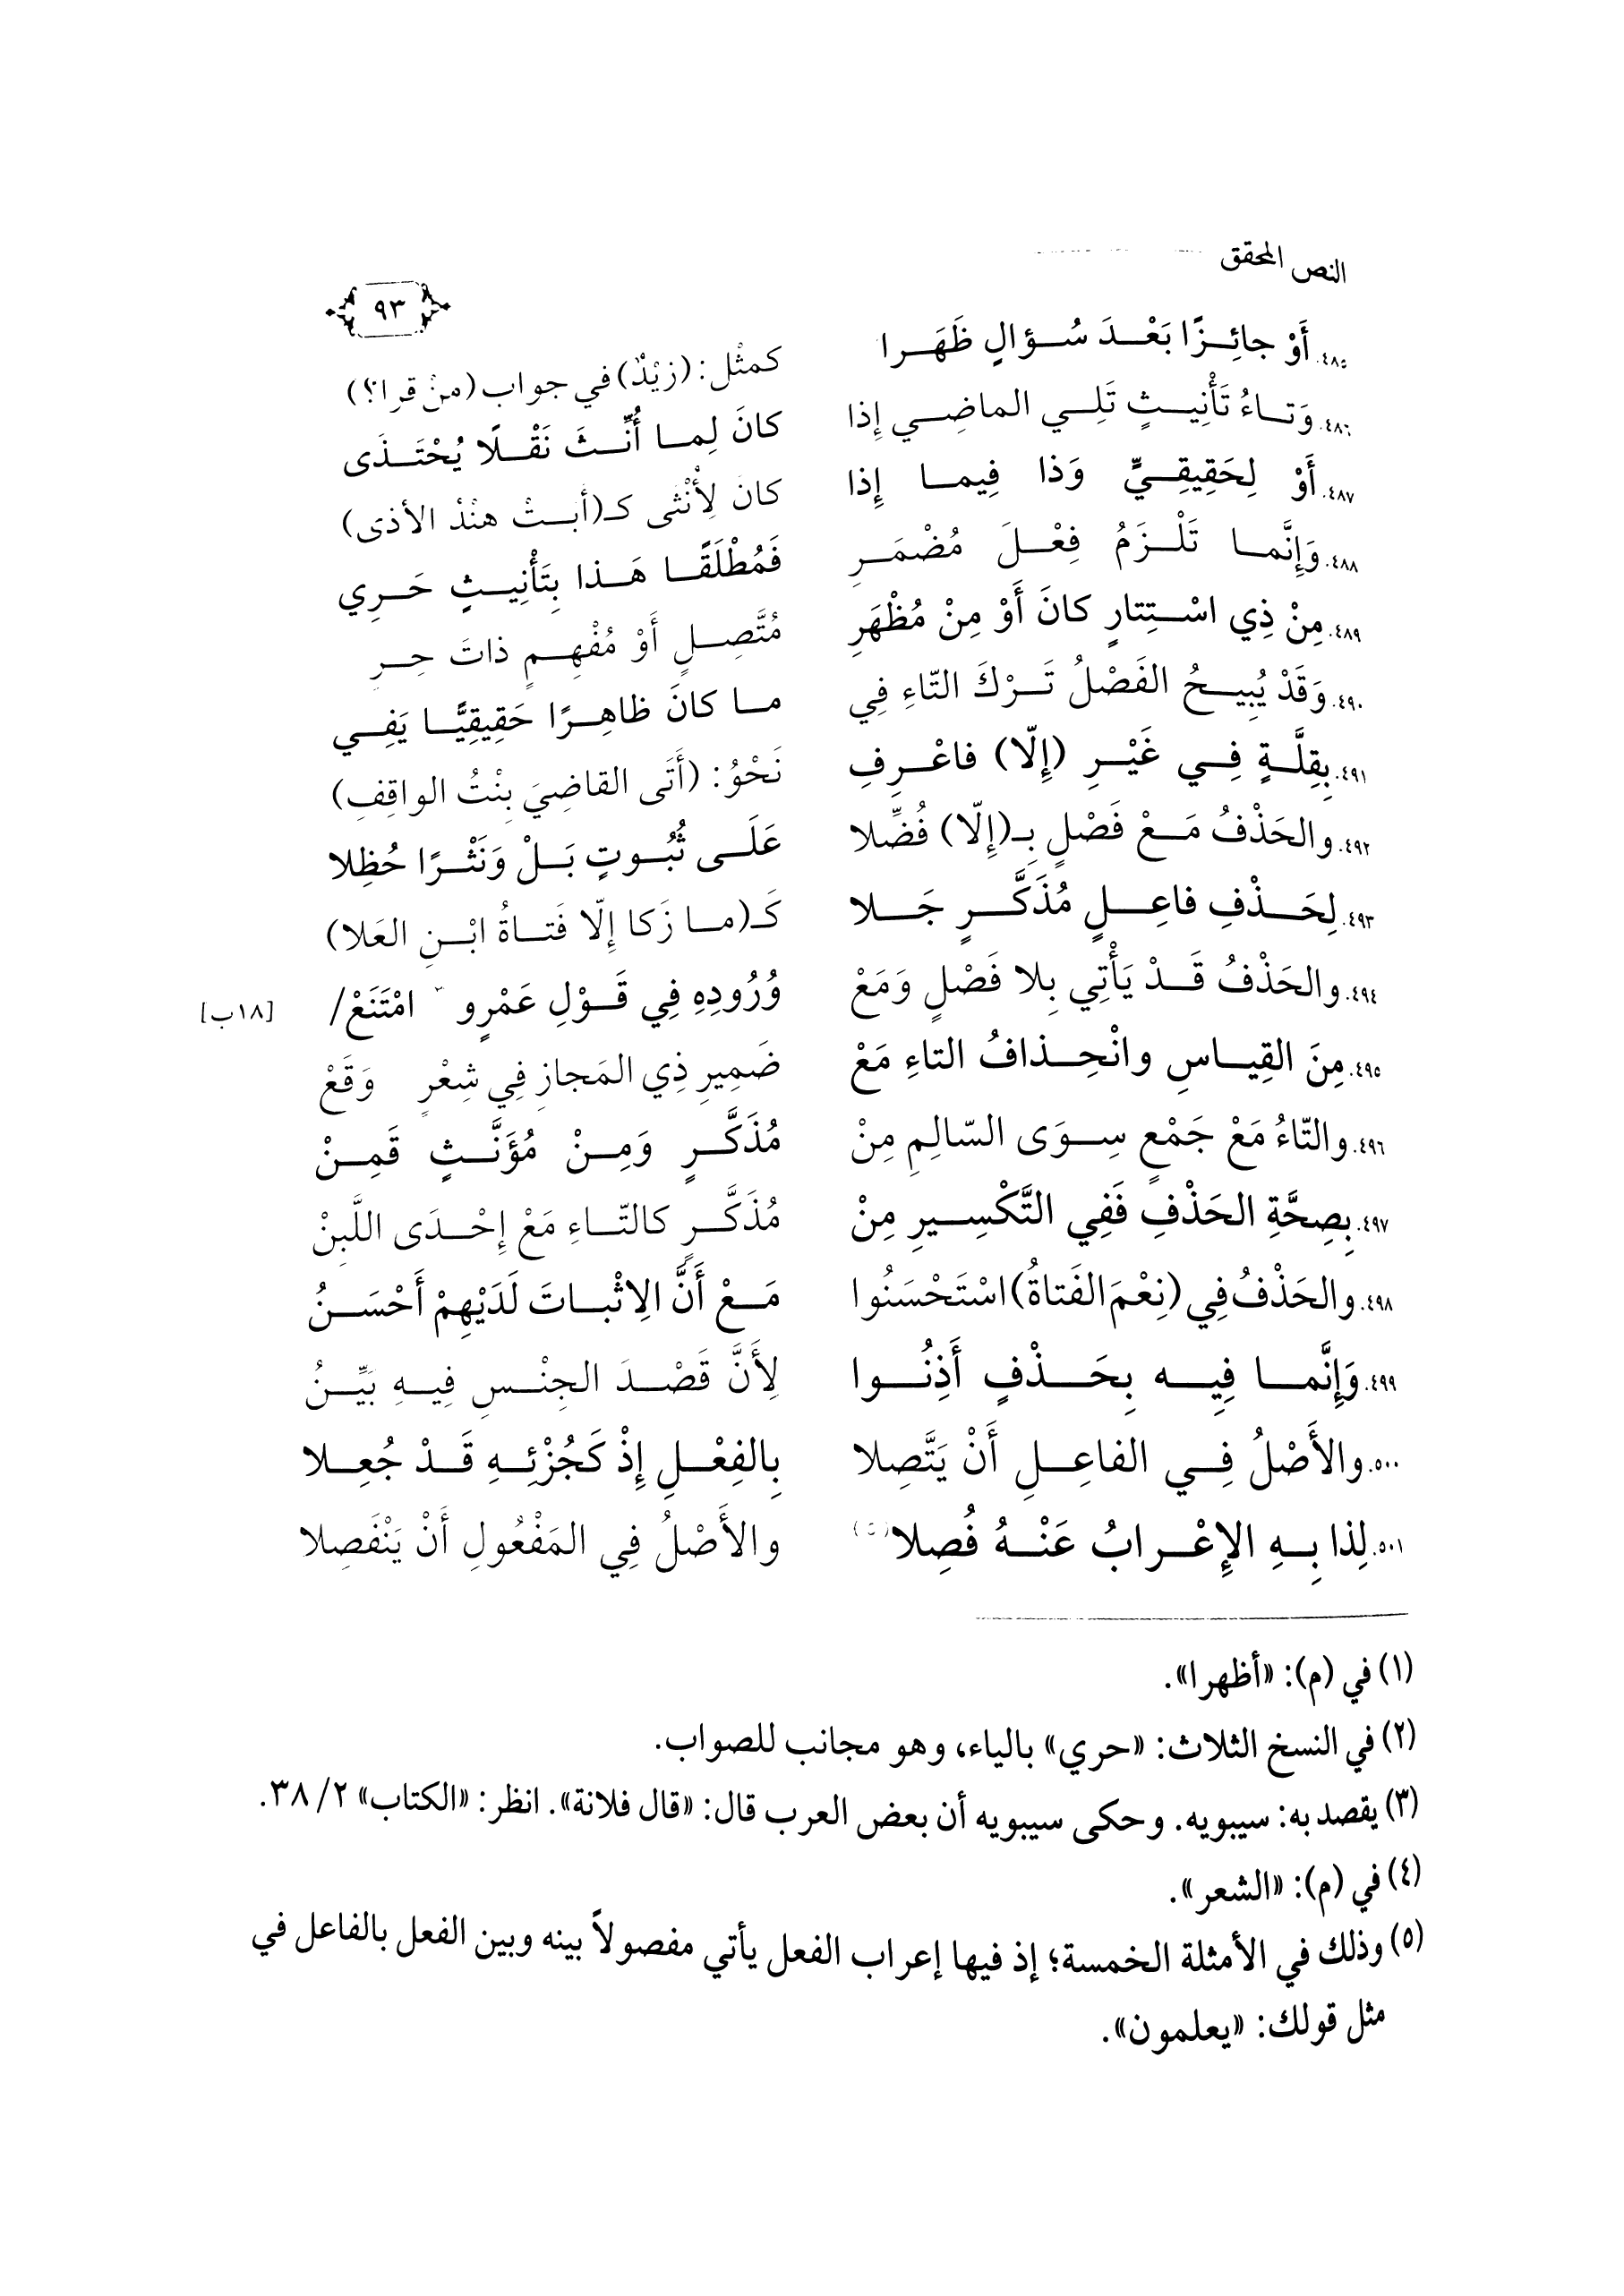 النص المحقق
٩٣
٤٨٥. أَوْ جائِـزًا بَعْـدَ سُـؤالٍ ظَهَـرا كمثْل: (زيْدٌ) في جواب (منْ قرا؟)
٤٨٦. وَتـاءُ تَأْنِيـثٍ تَلِـي الماضِـي إِذا كانَ لِمـا أُنِّـثَ نَقْـلًا يُحْتَـذَى
٤٨٧. أَوْ لِحَقِيقِـيٍّ وَذا فِيمـا إِذا كانَ لِأُنْثى كـ(أبـتْ هنْدُ الأذى)
٤٨٨. وَإِنَّمـا تَلْـزَمُ فِعْـلَ مُضْمَـرِ فَمُطْلَقًـا هَـذا بِتَأْنِيـثٍ حَـرِي
٤٨٩. مِنْ ذِي اسْـتِتارٍ كانَ أَوْ مِنْ مُظْهَرِ مُتَّصِـلٍ أَوْ مُفْهِـمٍ ذاتَ حِـرِ
٤٩٠. وَقَدْ يُبِيـحُ الفَصْلُ تَـرْكَ التّاءِ فِي مـا كانَ ظاهِـرًا حَقِيقِيًّـا يَفِـي
٤٩١. بِقِلَّـةٍ فِـي غَيْـرِ (إِلّا) فاعْـرِفِ نَحْوُ: (أَتَى القاضِيَ بِنْتُ الواقِفِ)
٤٩٢. والحَذْفُ مَـعْ فَصْلٍ بِـ(إِلّا) فُضِّلا عَلَـى ثُبُـوتٍ بَـلْ وَنَثْـرًا حُظِلا
٤٩٣. لِحَـذْفِ فاعِـلٍ مُذَكَّـرٍ جَـلا كَـ(مـا زَكا إِلّا فَتـاةُ ابْـنِ العَلا)
٤٩٤. والحَذْفُ قَـدْ يَأْتِي بِلا فَصْلٍ وَمَعْ وُرُودِهِ فِي قَـوْلِ عَمْرٍو امْتَنَعْ/ [١٨ب]
٤٩٥. مِنَ القِيـاسِ وانْحِـذافُ التاءِ مَعْ ضَمِيرِ ذِي المَجازِ فِي شِعْرٍ وَقَعْ
٤٩٦. والتّاءُ مَعْ جَمْعٍ سِـوَى السّالِمِ مِنْ مُذَكَّـرٍ وَمِـنْ مُؤَنَّـثٍ قَمِـنْ
٤٩٧. بِصِحَّةِ الحَذْفِ فَفِي التَّكْسِـيرِ مِنْ مُذَكَّـرٍ كالتّـاءِ مَعْ إِحْـدَى اللَّبِنْ
٤٩٨. والحَذْفُ فِي (نِعْمَ الفَتاةُ) اسْتَحْسَنُوا مَـعْ أَنَّ الاِثْبـاتَ لَدَيْهِمْ أَحْسَـنُ
٤٩٩. وَإِنَّمـا فِيـه بِحَـذْفٍ أَذِنُـوا لِأَنَّ قَصْـدَ الجِنْـسِ فِيـهِ بَيِّـنُ
٥٠٠. والأَصْلُ فِـي الفاعِـلِ أَنْ يَتَّصِلا بِالفِعْـلِ إِذْ كَجُزْئِـهِ قَـدْ جُعِـلا
٥٠١. لِذا بِـهِ الإِعْـرابُ عَنْـهُ فُصِلا(٥) والأَصْلُ فِي المَفْعُولِ أَنْ يَنْفَصِلا
(١) في (م): «أظهرا».
(٢) في النسخ الثلاث: «حري» بالياء، وهو مجانب للصواب.
(٣) يقصد به: سيبويه. وحكى سيبويه أن بعض العرب قال: «قال فلانة». انظر: «الكتاب» ٢/ ٣٨.
(٤) في (م): «الشعر».
(٥) وذلك في الأمثلة الخمسة؛ إذ فيها إعراب الفعل يأتي مفصولاً بينه وبين الفعل بالفاعل في
مثل قولك: «يعلمون».